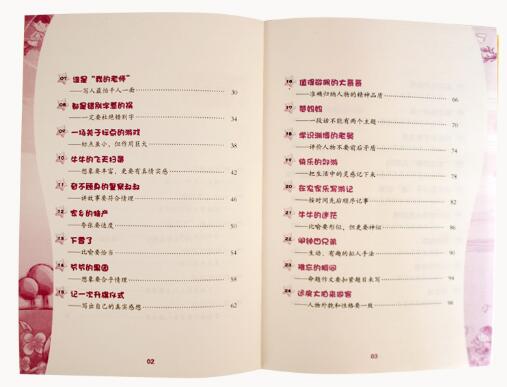 07 谁是“我的老师”
——写人最怕千人一面 30
08 都是错别字惹的祸
——一定要杜绝错别字 34
09 一场关于标点的游戏
——标点虽小，但作用巨大 38
10 牛牛的飞天扫帚
——想象要丰富，更要有真情实感 42
11 奋不顾身的警察叔叔
——讲故事要符合情理 46
12 家乡的特产
——夸张要适度 50
13 下雪了
——比喻要恰当 54
14 爷爷的果园
——想象要合乎情理 58
15 记一次升旗仪式
——写出自己的真实感想 62
02
16 值得敬佩的大哥哥
——准确归纳人物的精神品质 66
17 替妈妈
——一段话不能有两个主题 70
18 学识渊博的老舅
——评价人物不要前后矛盾 74
19 快乐的郊游
——把生活中的灵感记下来 78
20 在农家乐写游记
——按时间先后顺序记事 82
21 牛牛的迷茫
——比喻要形似，但更要神似 86
22 甲钟四兄弟
——生动、有趣的拟人手法 90
23 难忘的瞬间
——命题作文要扣紧题目来写 94
24
——人物外貌和性格要一致 98
03